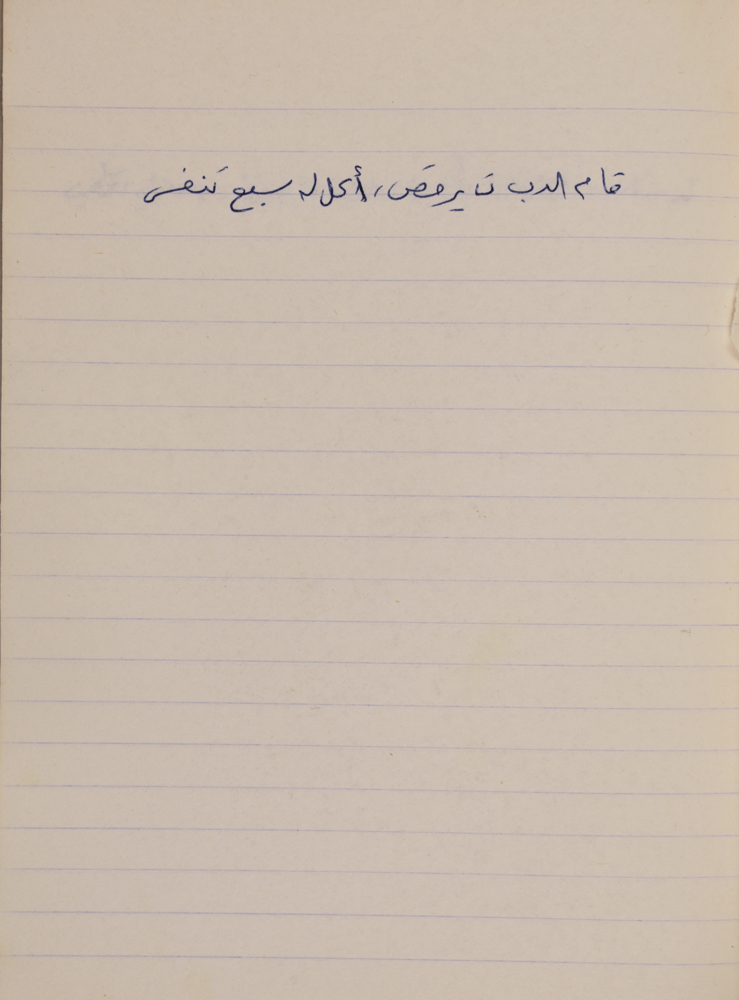 قام الدب ت يرقص، أكل له سبع تنفس